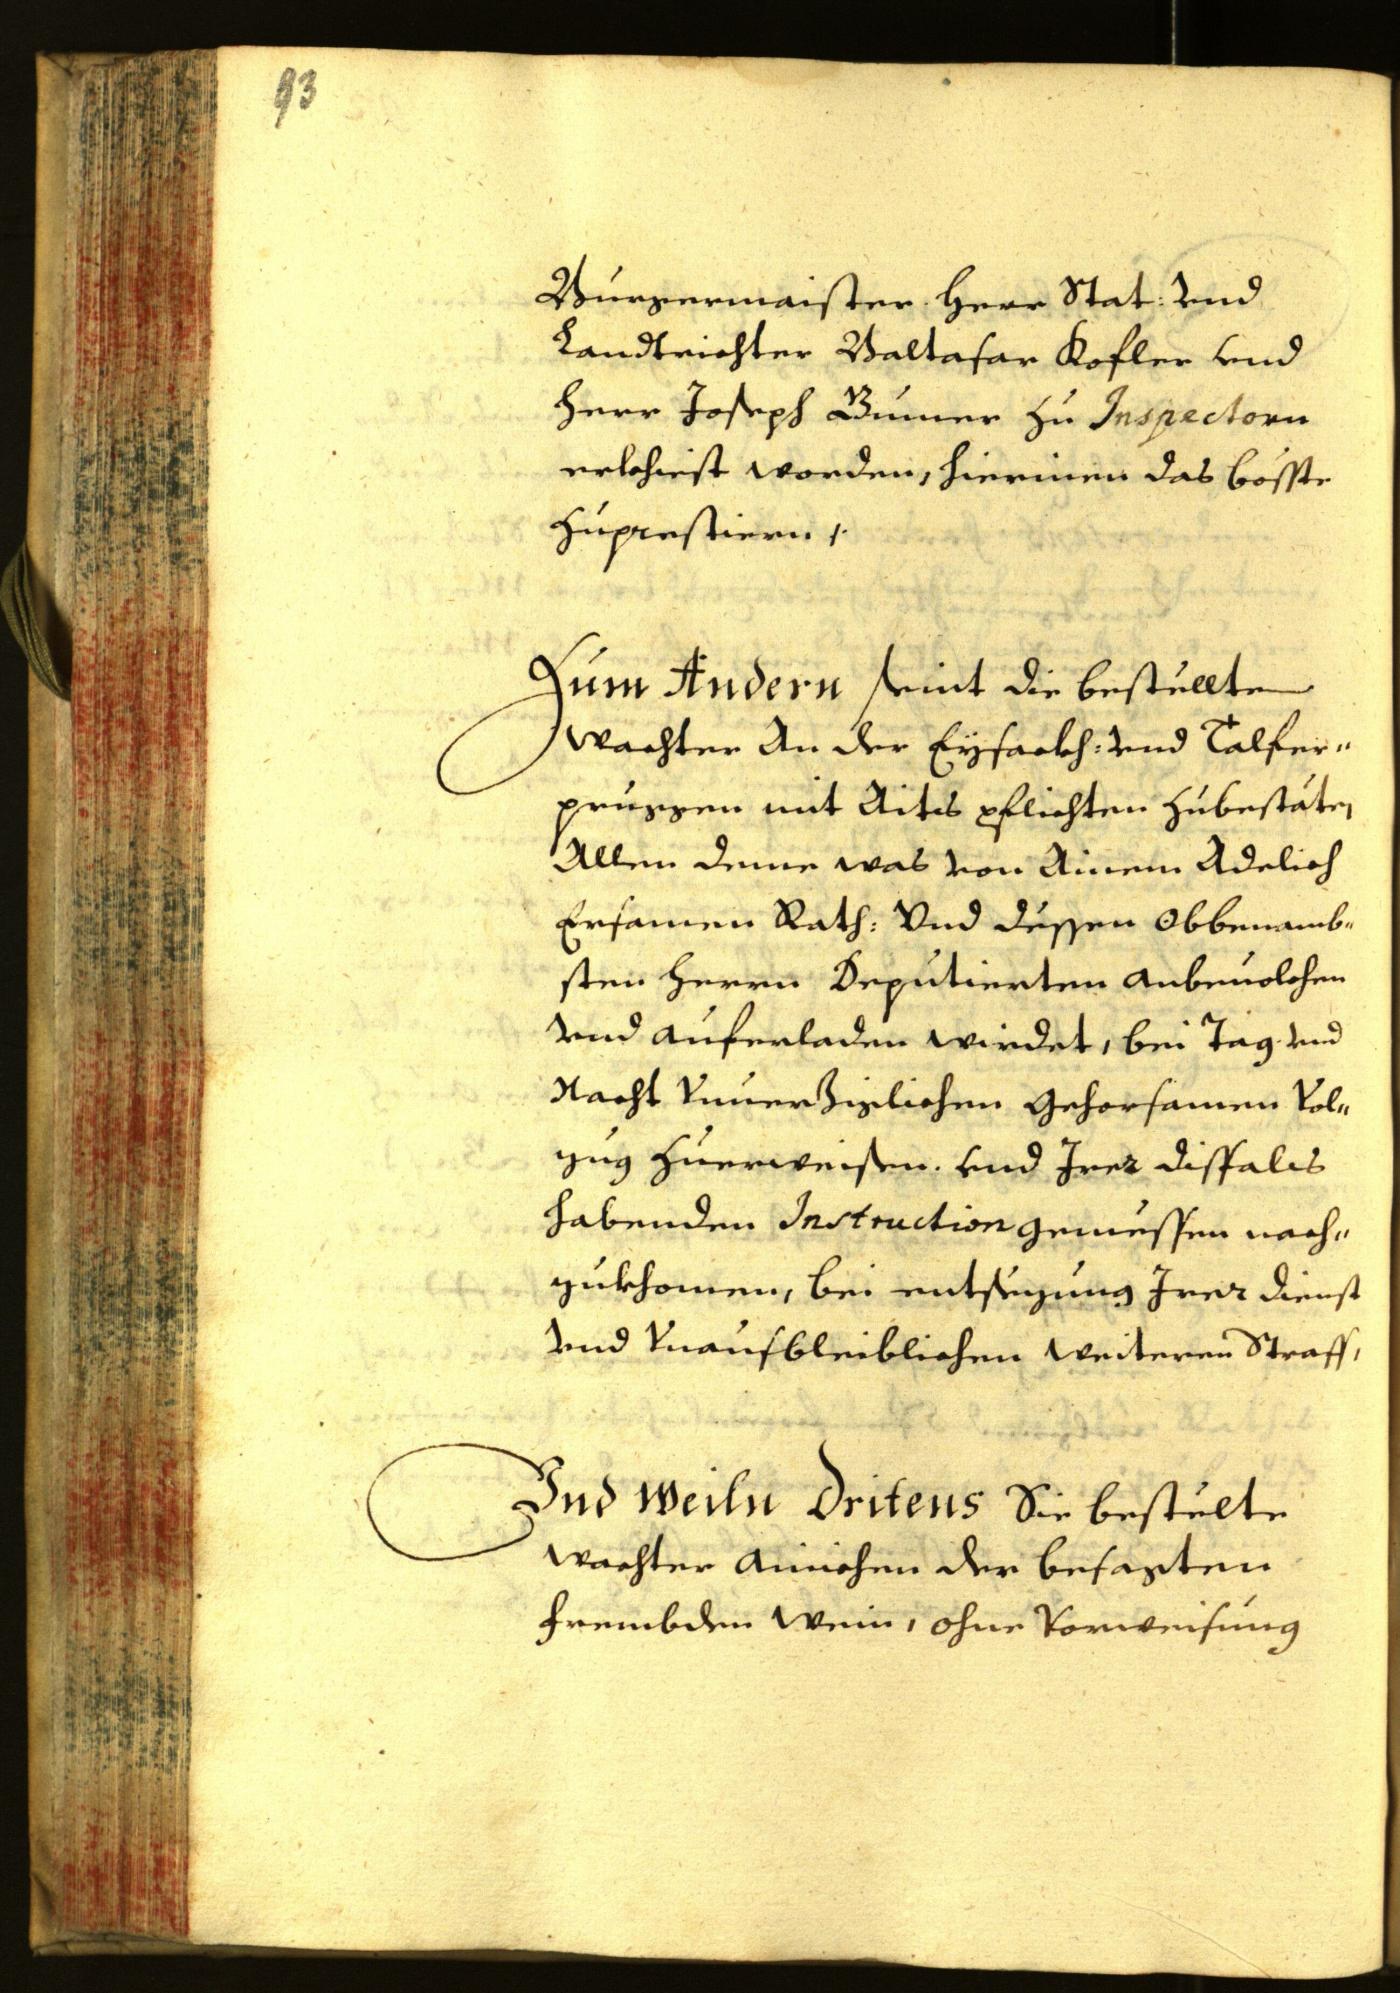 93
Burgermaister Herr Stat: vnd
Landtrichter Baltasar Kofler vnd
Herr Joseph Gumer zu Inspectorn
erkhiest worden, hierinen das bösste
zuprestiern ./.
Zum Andern seint die bestellten
Wachter An der Eysackh: vnd Talfer„
pruggen mit Aits pflichten zubestäten,
Allen deme was von Ainem Adelich
Ersamen Rath: Vnd dessen Obbenamb„
sten Herrn Deputierten anbeuolchen
vnd auferladen wirdet, bei Tag vnd
Nacht Vnuerziglichen Gehorsamen Vol„
zug zuerweisen. vnd Irer dissfals
habenden Instruction gemessen nach„
zukhomen, bei entsezung Irer dienst
vnd Vnausbleiblichen weiteren Straff,
Vnd weiln Dritens Sie bestelte
Wachter ainichen der besagten
frembden Wein, ohne Vorweisung